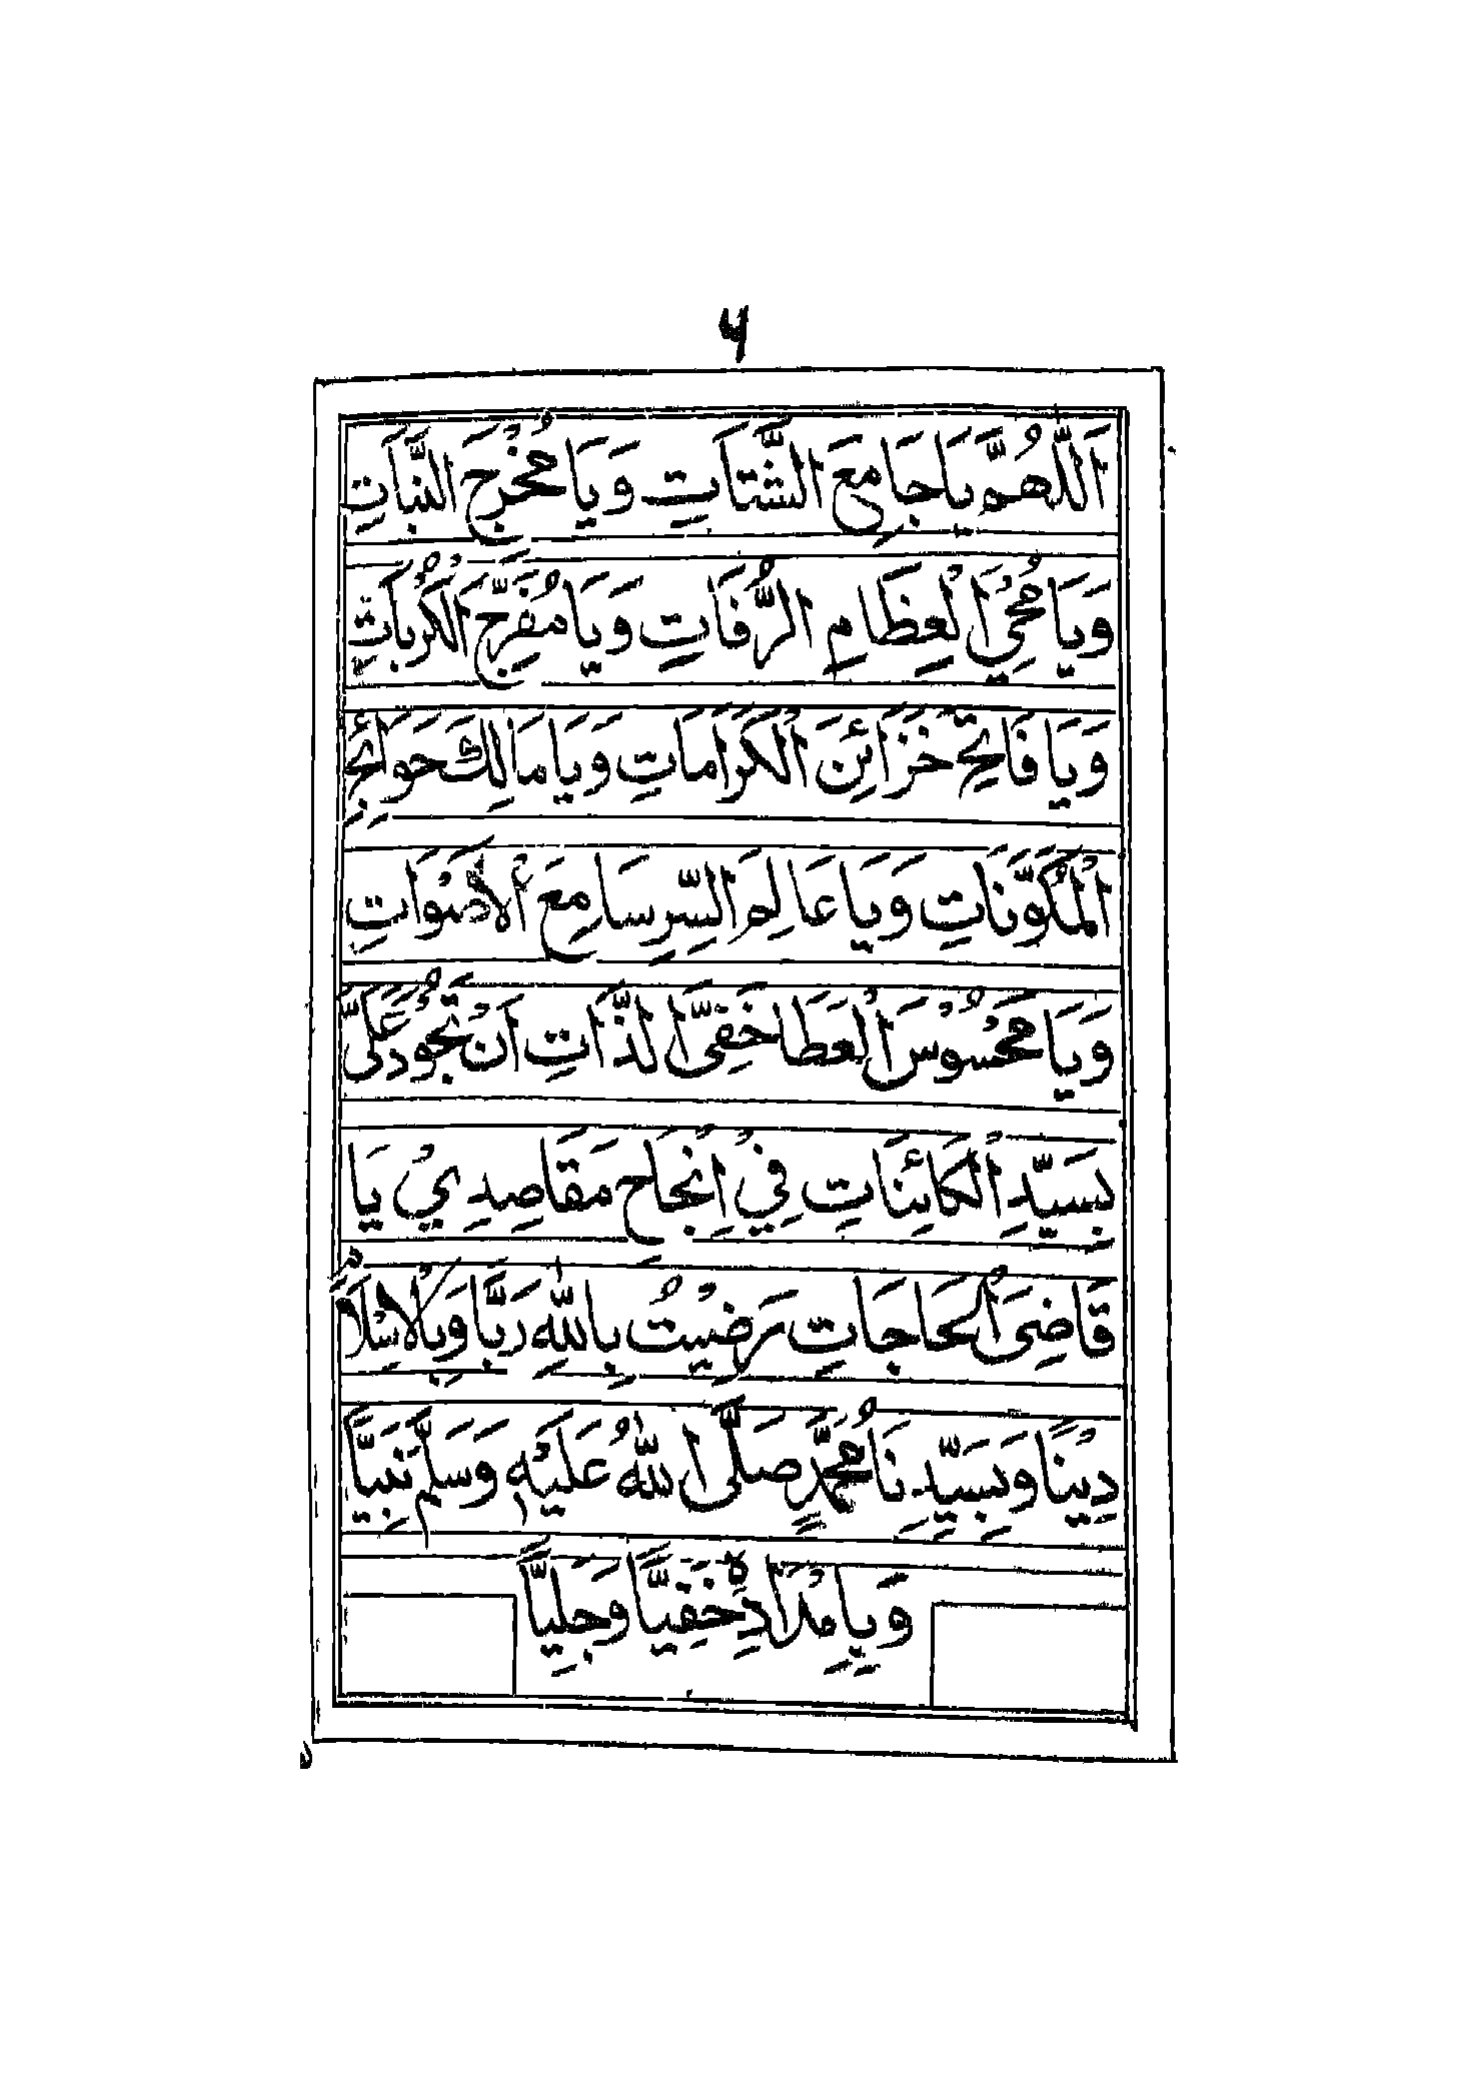 ۶
اَللّٰهُمَّ يَاجَامِعَ الشَّتَاتِ وَيَا مُخْرِجَ النَّبَاتِ
وَيَا مُحْيِيَ الْعِظَامِ الرُّفَاتِ وَيَا مُفَرِّجَ الْكُرُبَاتِ
وَيَا فَاتِحَ خَزَائِنَ الْكَرَامَاتِ وَيَا مَالِكَ حَوَائِجِ
الْمُكَوَّنَاتِ وَيَا عَالِمَ السِّرِ سَامِعَ الْأَصْوَاتِ
وَيَا مَحْسُوْسَ الْعَطَا خَفِيَّ الذَّاتِ اَنْ تَجُوْدَ عَلَيَّ
بِسَيِّدِ الْكَائِنَاتِ فِيْ اِنْجَاحِ مَقَاصِدِيْ يَا
قَاضِيَ الْحَاجَاتِ رَضِيْتُ بِاللّٰهِ رَبًّا وَبِالْاِسْلَامِ
دِيْنًا وَبِسَيِّدِنَا مُحَمَّدٍ صَلَّى اللّٰهُ عَلَيْهِ وَسَلَّمَ نَبِيًّا
وَيَا مِدَادِهٖ خَفِيًّا وَجَلِيًّا